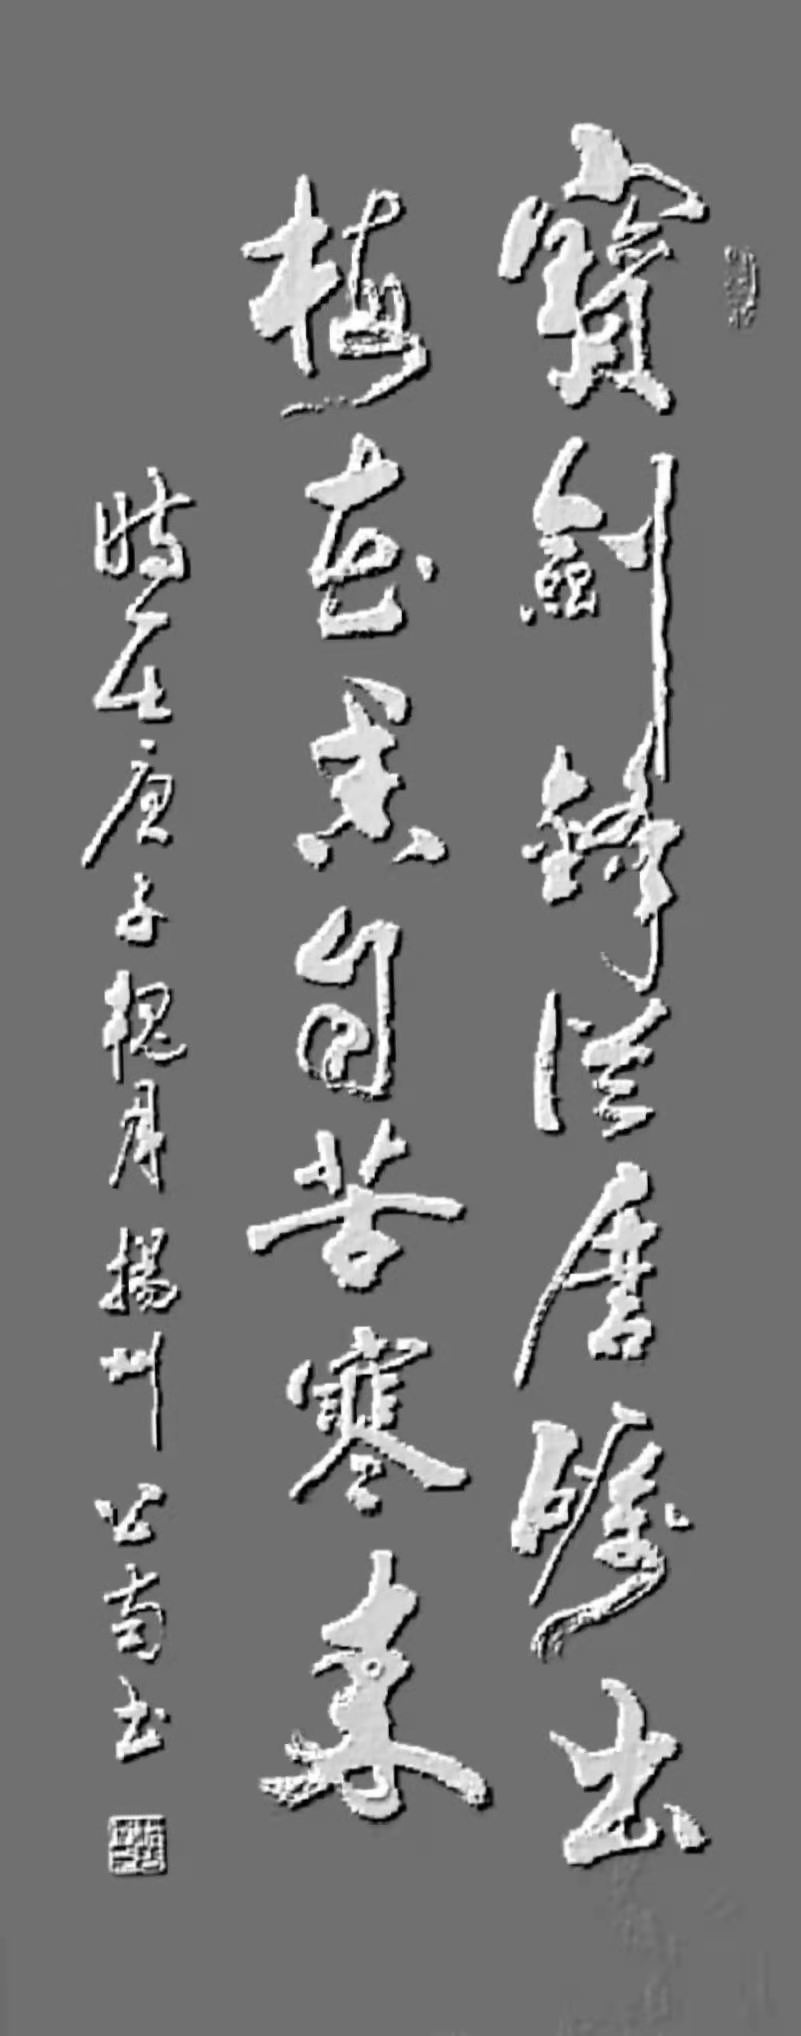 寶劍鋒從磨礪出
梅花香自苦寒來
時在庚子槐月揚州公南书